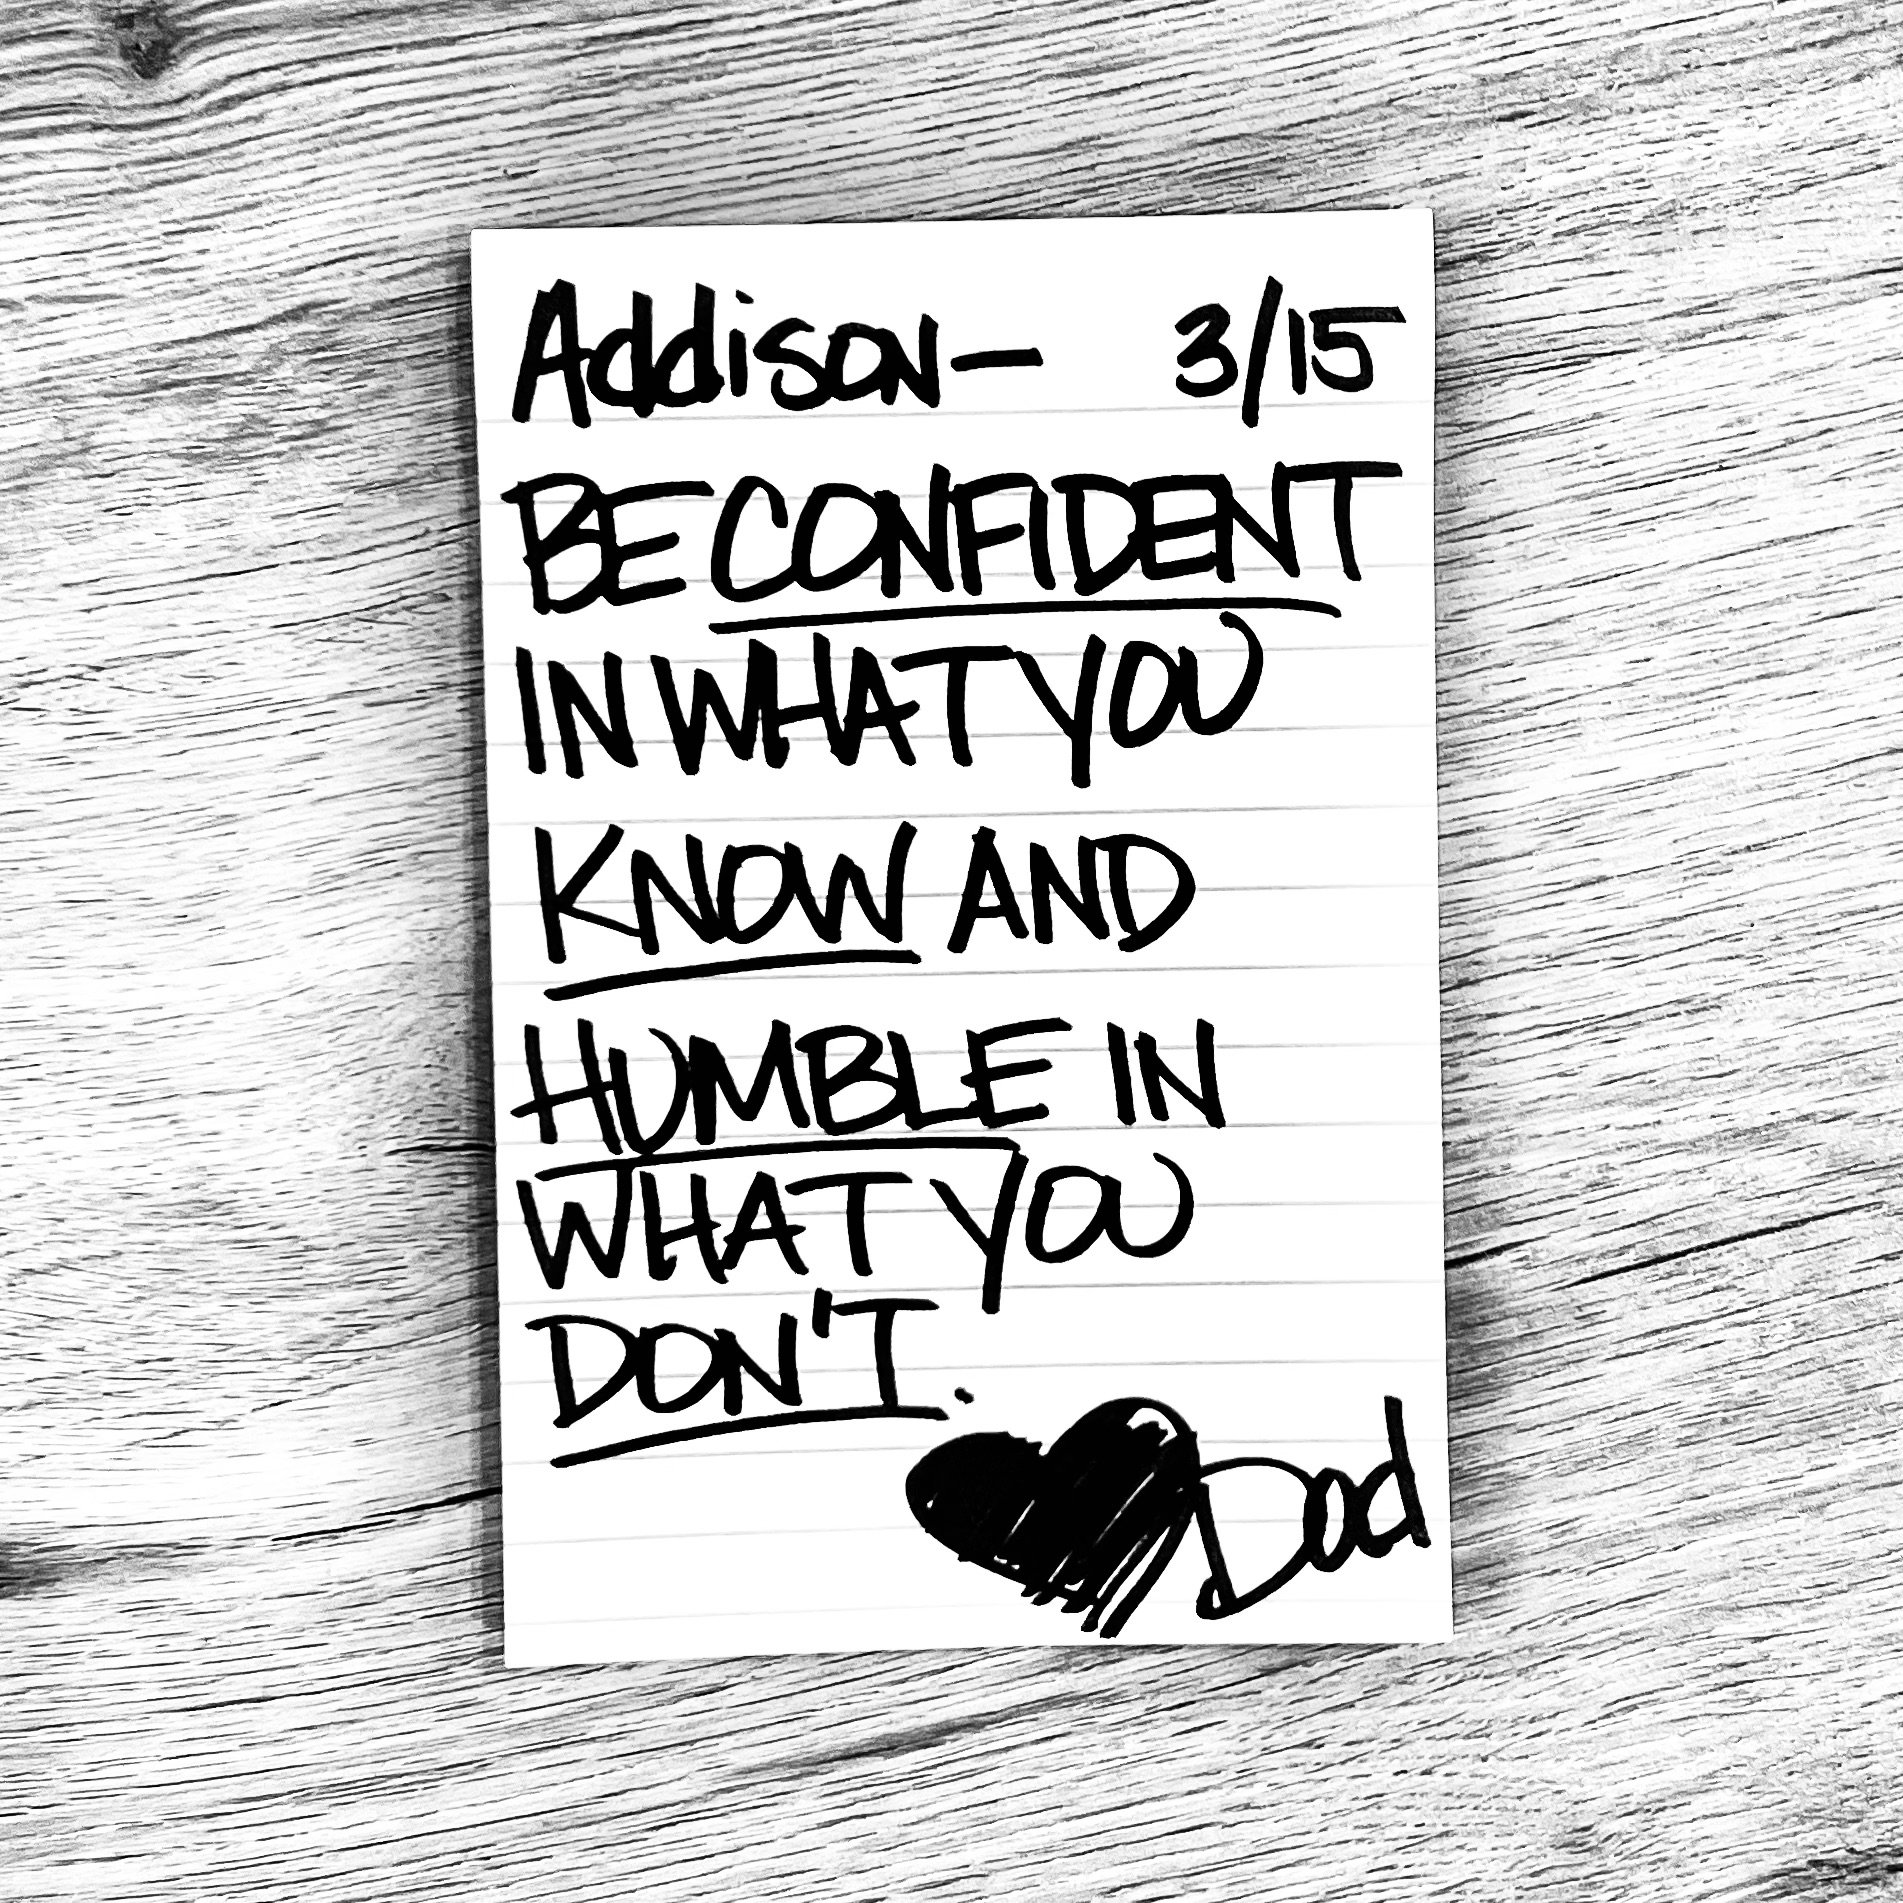 Addison— 3/15
BE CONFIDENT
IN WHAT YOU
KNOW AND
HUMBLE IN
WHAT YOU
DON'T.
Dad